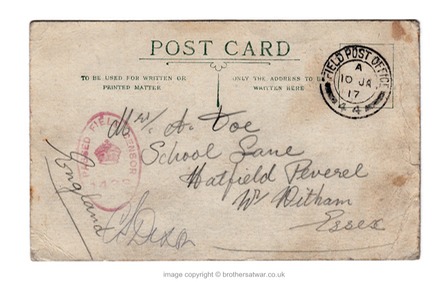 POST CARD
TO BE USED FOR WRITTEN OR
PRINTED MATTER
ONLY THE ADDRESS TO BE
WRITTEN HERE
FIELD POST OFFICE
A
10 JA
17
44
PASSED FIELD CENSOR
England
Mrs. A. Poe
School Lane
Hatfield Peverel
Nr Witham
Essex
Dixon
image copyright © brothersatwar.co.uk